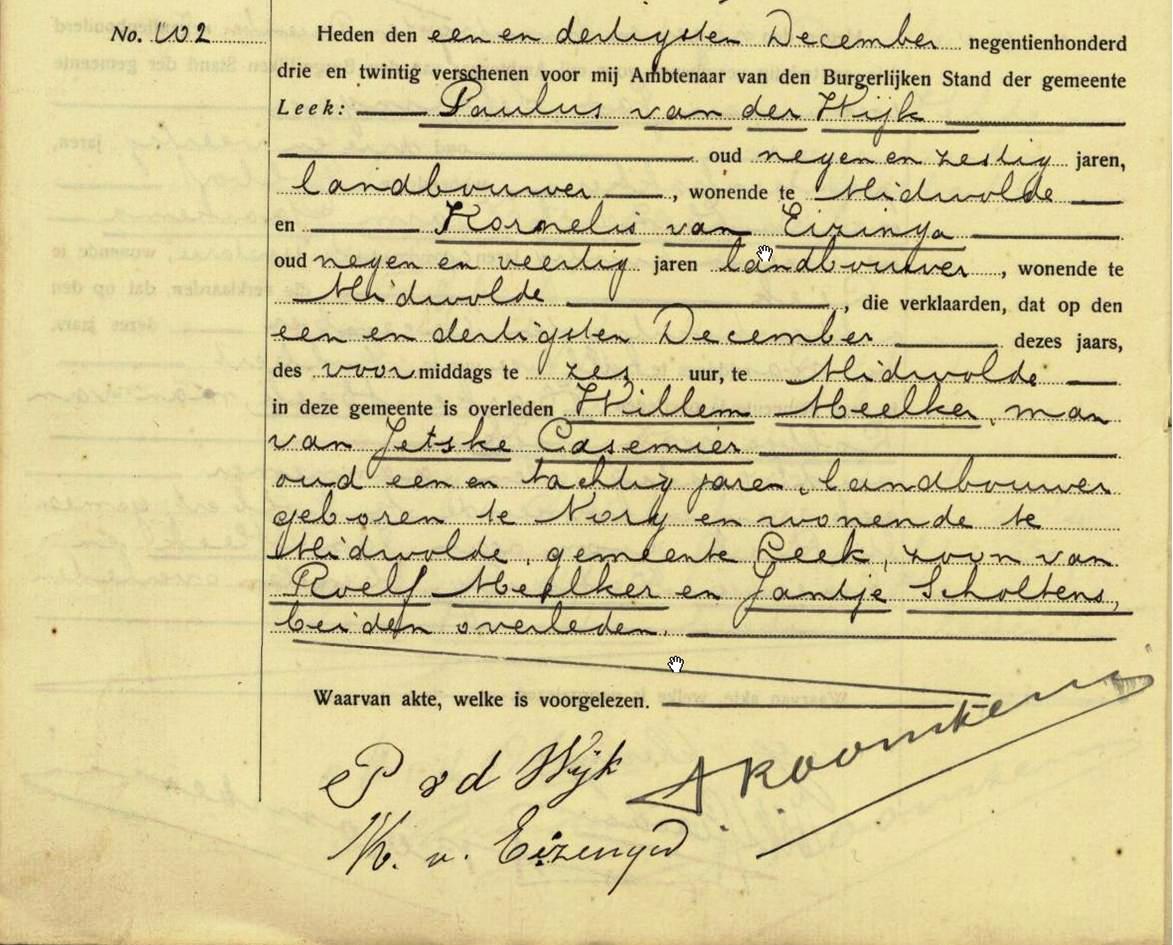 No. 102
Heden den een en dertigsten December negentienhonderd
drie en twintig verschenen voor mij Ambtenaar van den Burgerlijken Stand der gemeente
Leek: Paulus van der Wijk
oud negen en zestig jaren,
landbouwer, wonende te Midwolde
en Kornelis van Eizinga
oud negen en veertig jaren landbouwer, wonende te
Midwolde, die verklaarden, dat op den
een en dertigsten December dezes jaars,
des voormiddags te zes uur, te Midwolde
in deze gemeente is overleden Willem Meelker, man
van Jetske Casemier
oud een en tachtig jaren, landbouwer
geboren te Norg en wonende te
Midwolde, gemeente Leek, zoon van
Roelf Meelker en Jantje Scholtens,
beiden overleden.
Waarvan akte, welke is voorgelezen.
P v d Wijk
K. v. Eizenga